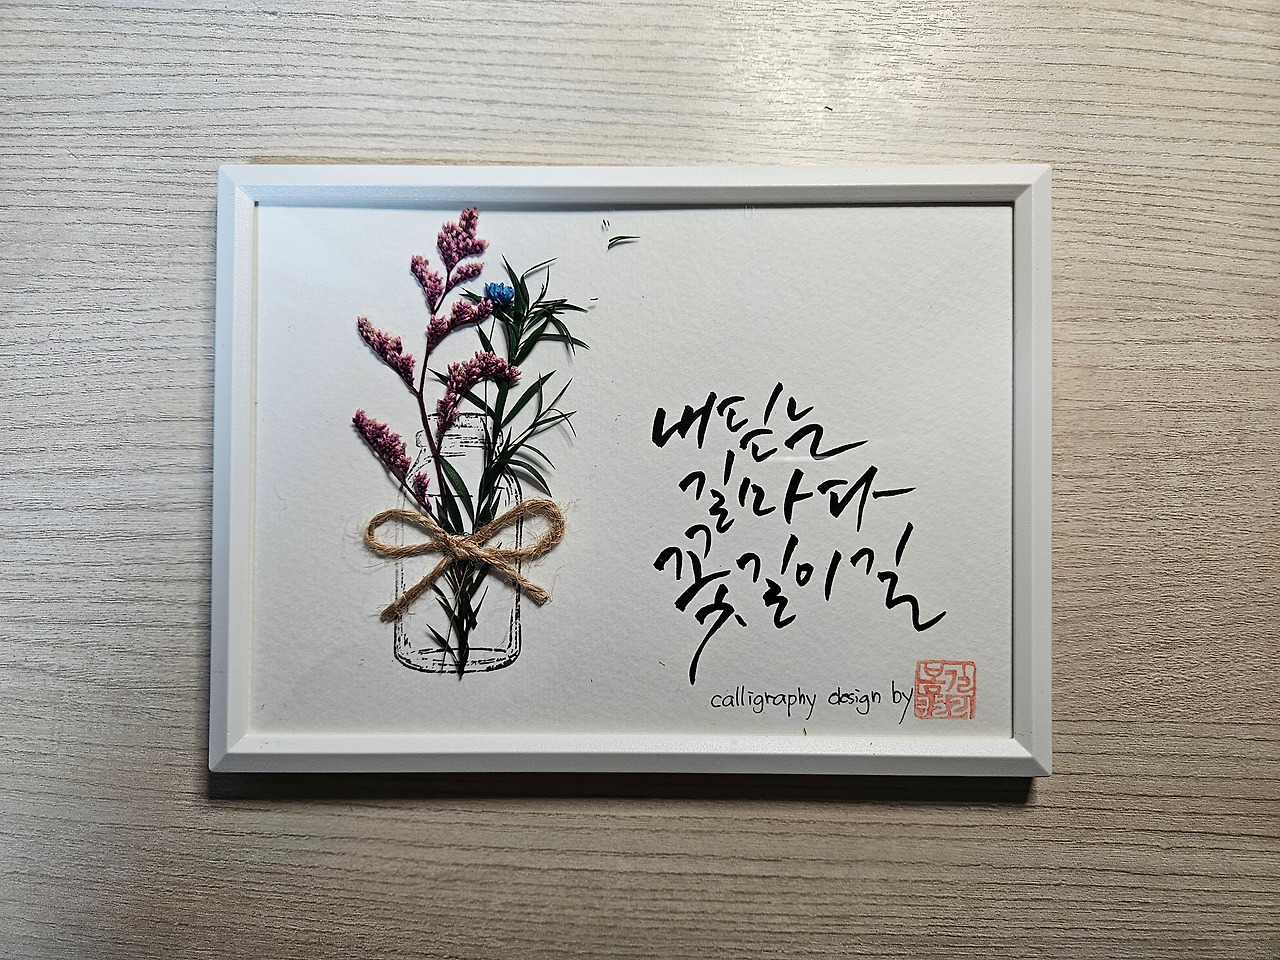 내딛는
길마다
꽃길이길
calligraphy design by
봄길
캘리